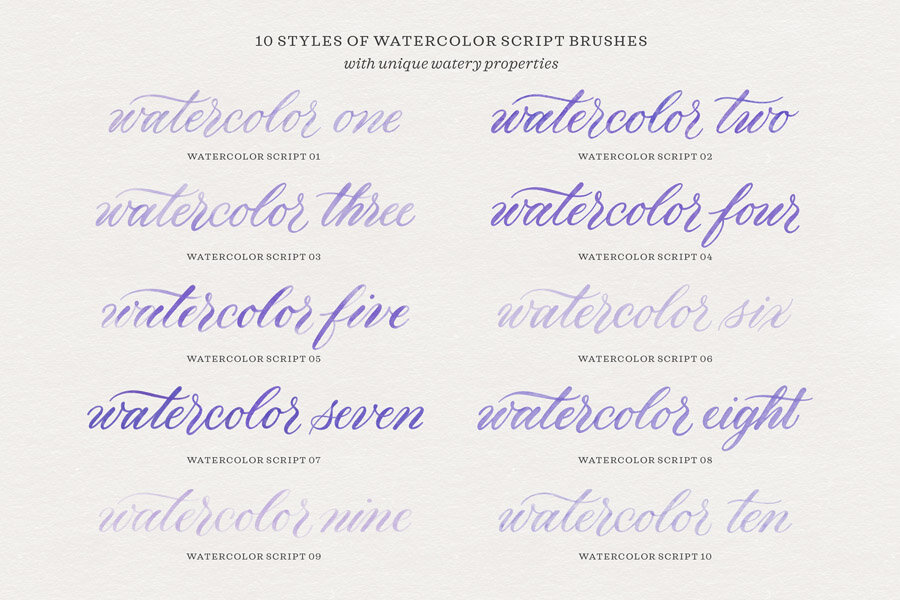 10 STYLES OF WATERCOLOR SCRIPT BRUSHES
with unique watery properties
watercolor one
WATERCOLOR SCRIPT 01
watercolor two
WATERCOLOR SCRIPT 02
watercolor three
WATERCOLOR SCRIPT 03
watercolor four
WATERCOLOR SCRIPT 04
watercolor five
WATERCOLOR SCRIPT 05
watercolor six
WATERCOLOR SCRIPT 06
watercolor seven
WATERCOLOR SCRIPT 07
watercolor eight
WATERCOLOR SCRIPT 08
watercolor nine
WATERCOLOR SCRIPT 09
watercolor ten
WATERCOLOR SCRIPT 10